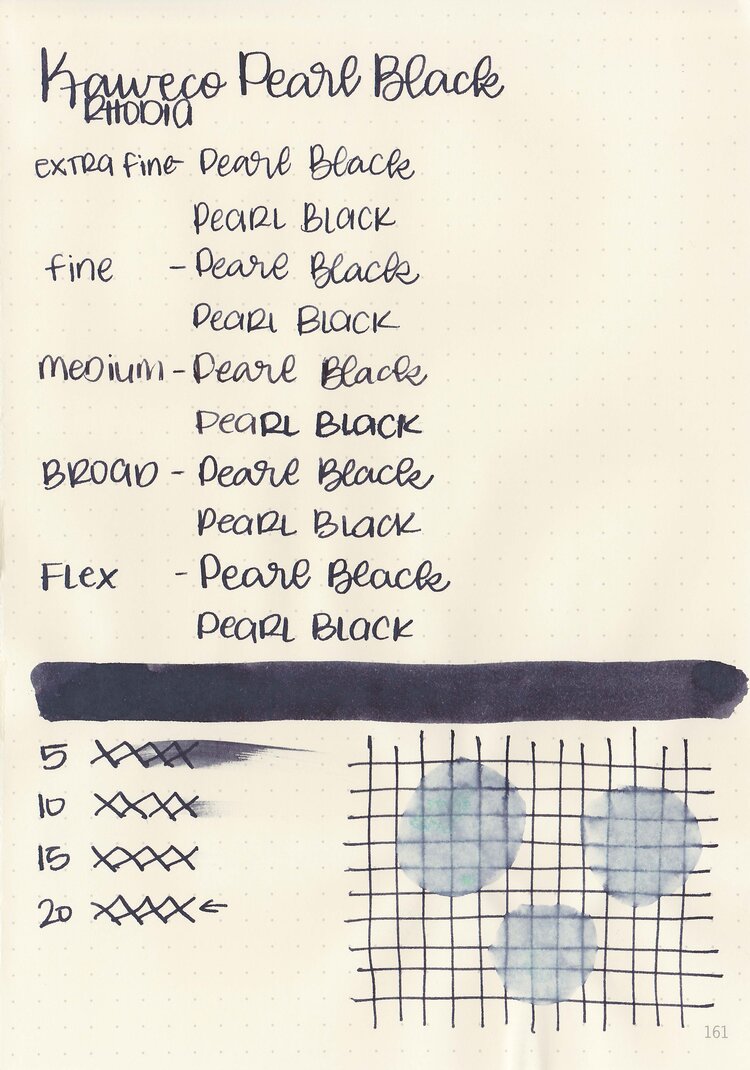 Kaweco Pearl Black
RHODIA
extra fine - Pearl Black
PEARL BLACK
fine - Pearl Black
PEARL BLACK
medium - Pearl Black
PEARL BLACK
BROAD - Pearl Black
PEARL BLACK
FLEX - Pearl Black
PEARL BLACK
5 XXXX
10 XXXX
15 XXXX
20 XXXX ←
161